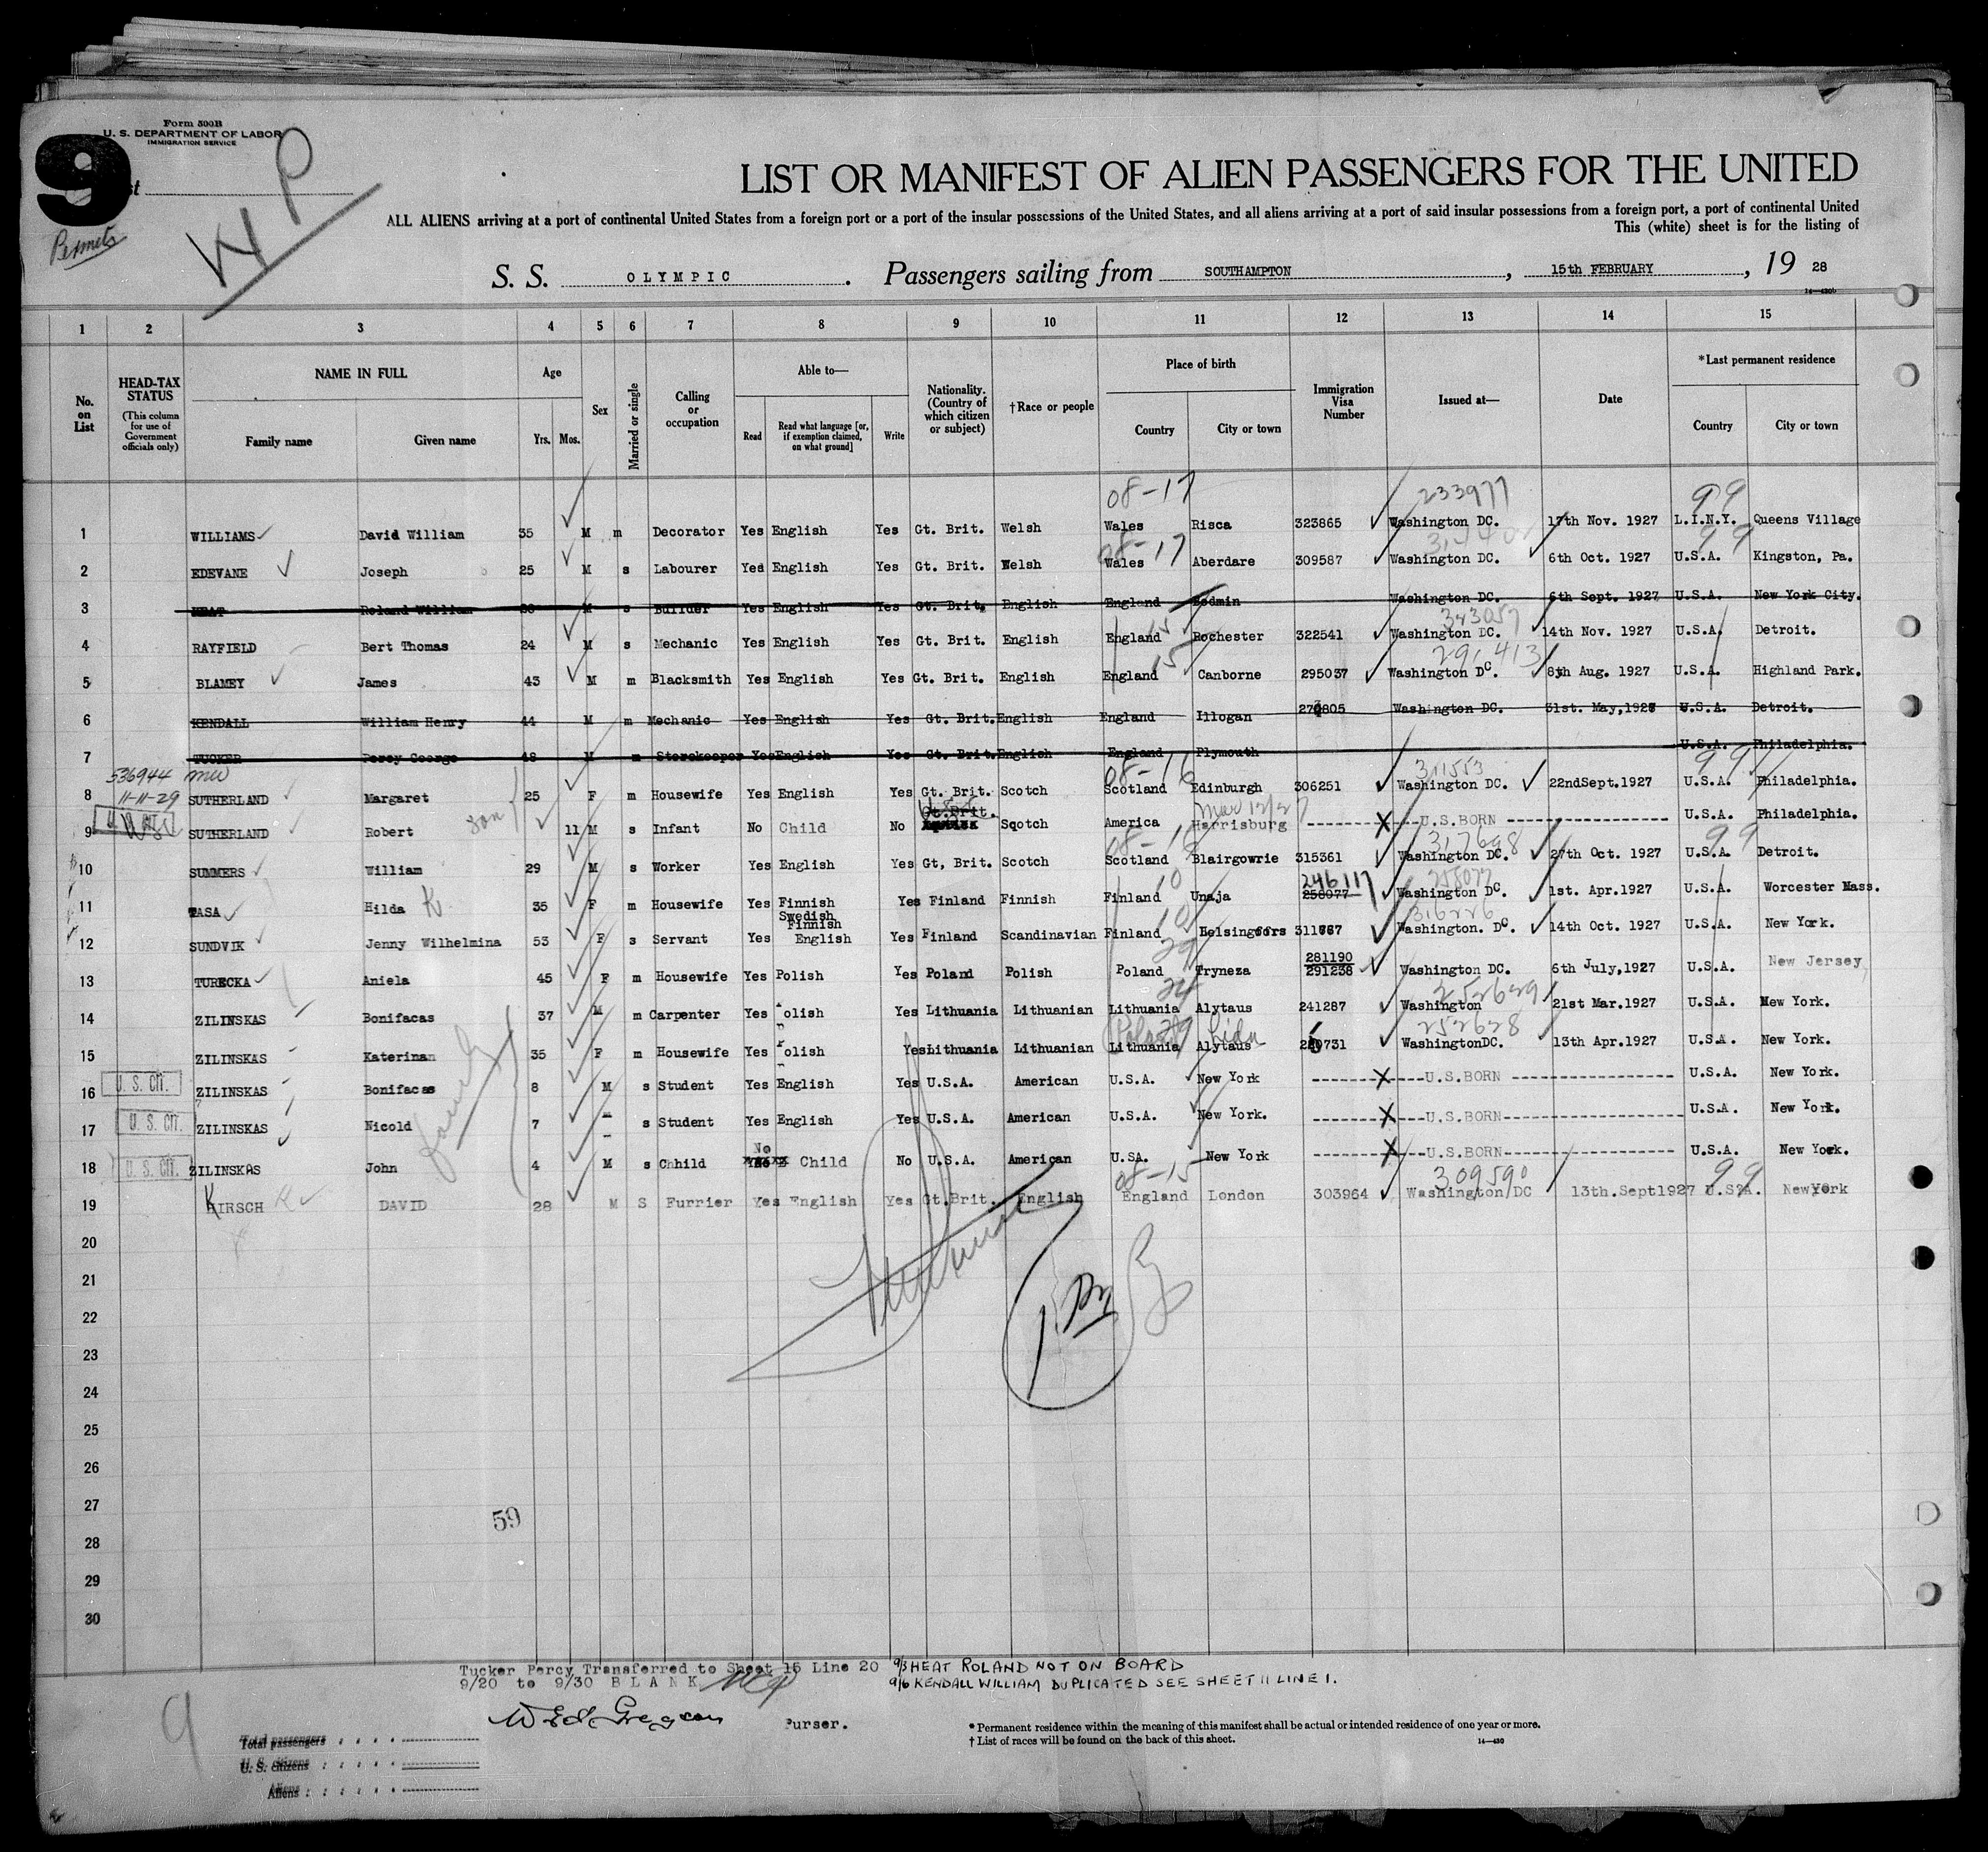 Form 500B
U. S. DEPARTMENT OF LABOR
IMMIGRATION SERVICE
9
Permits
LIST OR MANIFEST OF ALIEN PASSENGERS FOR THE UNITED
ALL ALIENS arriving at a port of continental United States from a foreign port or a port of the insular possessions of the United States, and all aliens arriving at a port of said insular possessions from a foreign port, a port of continental United
This (white) sheet is for the listing of
S. S. OLYMPIC. Passengers sailing from SOUTHAMPTON, 15th FEBRUARY, 19 28
1 2 3 4 5 6 7 8 9 10 11 12 13 14 15
No. on List
HEAD-TAX STATUS (This column for use of Government officials only)
NAME IN FULL Family name Given name
Age Yrs. Mos.
Sex
Married or single
Calling or occupation
Able to— Read Read what language [or, if exemption claimed, on what ground] Write
Nationality. (Country of which citizen or subject)
†Race or people
Place of birth Country City or town
Immigration Visa Number
Issued at—
Date
*Last permanent residence Country City or town
08-17 233977 99
1 WILLIAMS David William 35 M m Decorator Yes English Yes Gt. Brit. Welsh Wales Risca 323865 Washington DC. 17th Nov. 1927 L.I.N.Y. Queens Village
08-17 99
2 EDEVANE Joseph 25 M s Labourer Yes English Yes Gt. Brit. Welsh Wales Aberdare 309587 Washington DC. 6th Oct. 1927 U.S.A. Kingston, Pa.
3 HEAT Roland William 26 M s Builder Yes English Yes Gt. Brit. English England Bodmin Washington DC. 6th Sept. 1927 U.S.A. New York City.
15 343057
4 RAYFIELD Bert Thomas 24 M s Mechanic Yes English Yes Gt. Brit. English England Rochester 322541 Washington DC. 14th Nov. 1927 U.S.A. Detroit.
15 291413
5 BLAMEY James 43 M m Blacksmith Yes English Yes Gt. Brit. English England Canborne 295037 Washington DC. 8th Aug. 1927 U.S.A. Highland Park.
6 KENDALL William Henry 44 M m Mechanic Yes English Yes Gt. Brit. English England Illogan Washington DC. 31st. May, U.S.A. Detroit.
7 TUCKER Percy George 48 M m Storekeeper Yes English Yes Gt. Brit. English England Plymouth U.S.A. Philadelphia.
536944 08-16 311553 99
8 11-11-29 SUTHERLAND Margaret 25 F m Housewife Yes English Yes Gt. Brit. Scotch Scotland Edinburgh 306251 Washington DC. 22ndSept.1927 U.S.A. Philadelphia.
Gt.Brit. Mar 12/27
9 SUTHERLAND Robert son 11 M s Infant No Child No Scotch America Harrisburg --------U.S.BORN ---------------- U.S.A. Philadelphia.
08-16 317698 99
10 SUMMERS William 29 M s Worker Yes English Yes Gt, Brit. Scotch Scotland Blairgowrie 315361 Washington DC. 27th Oct. 1927 U.S.A. Detroit.
10 246117 258077
11 TASA Hilda K 35 F m Housewife Yes Finnish Yes Finland Finnish Finland Unaja 258077 Washington DC. 1st. Apr.1927 U.S.A. Worcester Mass.
Swedish Finnish 10 316226
12 SUNDVIK Jenny Wilhelmina 53 F s Servant Yes English Yes Finland Scandinavian Finland Helsingfors Washington. DC. 14th Oct. 1927 U.S.A. New York.
29 281190
13 TURECKA Aniela 45 F m Housewife Yes Polish Yes Poland Polish Poland Tryneza 291238 Washington DC. 6th July,1927 U.S.A. New Jersey
24 252629
14 ZILINSKAS Bonifacas 37 M m Carpenter Yes Polish Yes Lithuania Lithuanian Lithuania Alytaus 241287 Washington 21st Mar.1927 U.S.A. New York.
Poland 29 Lida 252628
15 ZILINSKAS Katerinan 35 F m Housewife Yes Polish Yes Lithuania Lithuanian Lithuania Alytaus WashingtonDC. 13th Apr.1927 U.S.A. New York.
16 U. S. CIT. ZILINSKAS Bonifacas 8 M s Student Yes English Yes U.S.A. American U.S.A. New York --------U.S.BORN ---------------- U.S.A. New York.
17 U. S. CIT. ZILINSKAS Nicold 7 s Student Yes English Yes U.S.A. American U.S.A. New York. --------U.S.BORN---------------- U.S.A. New York.
No
18 U. S. CIT. ZILINSKAS John 4 M s Chhild Child No U.S.A. American U.SA. New York --------U.S.BORN---------------- U.S.A. New York.
family 08-15 309590 99
19 KIRSCH DAVID 28 M S Furrier Yes English Yes Gt.Brit. English England London 303964 Washington DC 13th.Sept1927 U.S.A. NewYork
20
21
22
23
24
25
26
27
59
28
29
30
Tucker Percy Transferred to Sheet 16 Line 20 9/3 HEAT ROLAND NOT ON BOARD
9/20 to 9/30 BLANK 9/6 KENDALL WILLIAM DUPLICATED SEE SHEET 11 LINE 1.
Purser.
9
* Permanent residence within the meaning of this manifest shall be actual or intended residence of one year or more.
† List of races will be found on the back of this sheet.
14—430
Total passengers
U. S. citizens
Aliens